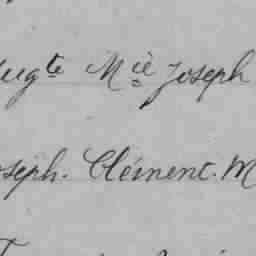 Augte Mie Joseph
Joseph. Clément. M